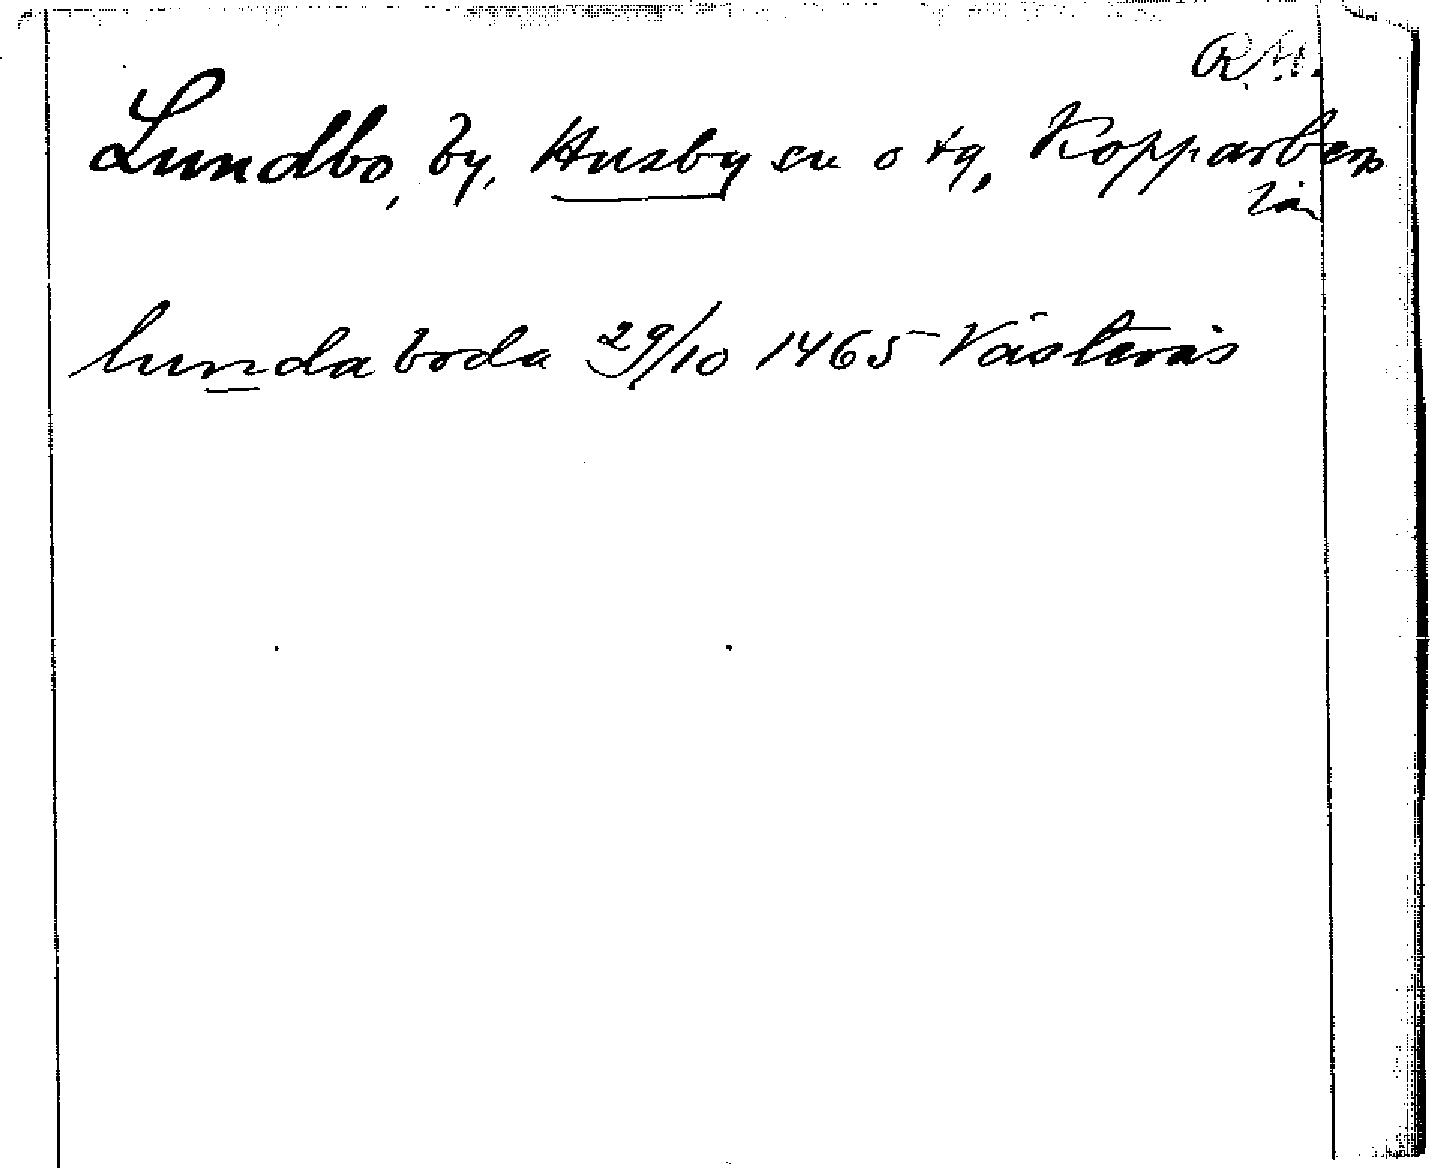 R.A.
Lundbo, by, Husby sn o tg, Kopparbergs
län
lunda boda 29/10 1465 Västerås